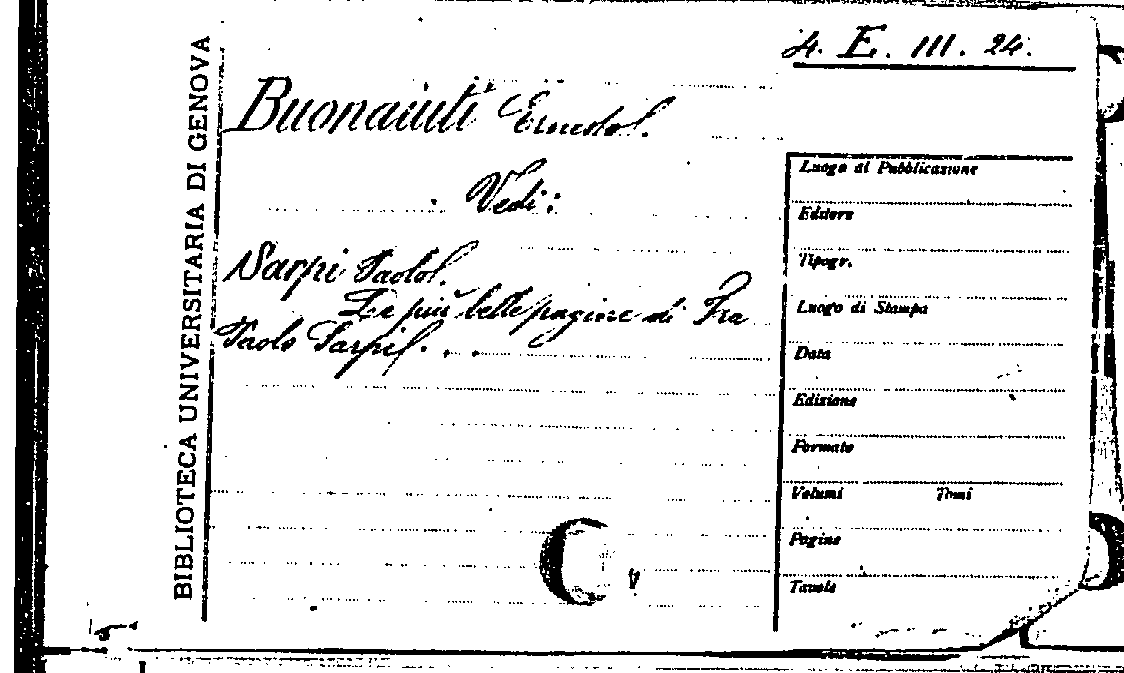 4. E. III. 24.
BIBLIOTECA UNIVERSITARIA DI GENOVA
Buonaiuti Ernesto.
Vedi:
Sarpi Paolo.
Le più belle pagine di Fra
Paolo Sarpi. . .
Luogo di Pubblicazione
Editore
Tipogr.
Luogo di Stampa
Data
Edizione
Formato
Volumi Tomi
Pagine
Tavole